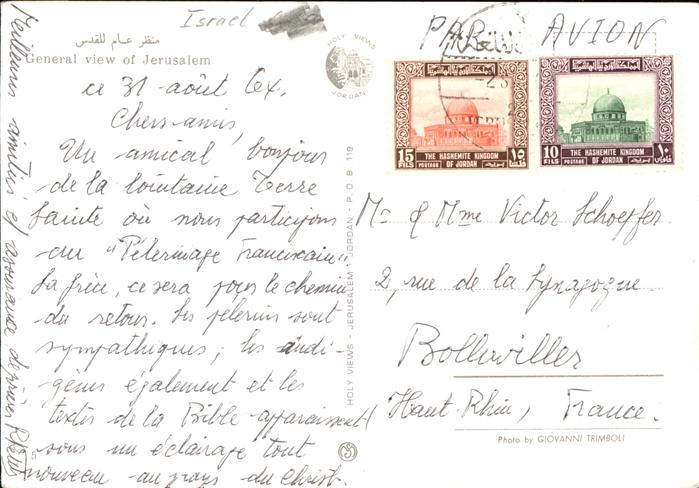 Israel
منظر عام للقدس
General view of Jerusalem
ce 31 août 64.
Chers amis,
Un amical bonjour
de la lointaine Terre
Sainte où nous participons
au "Pélerinage Franciscain"
La frèce, ce sera pour le chemin
du retour. Les pelerins sont
sympathiques; les indi-
gènes également et les
textes de la Bible apparaissent
sous un éclairage tout
nouveau au pays du Christ.
Meilleures amitiés et assurance de prières
HOLY VIEWS
JORDAN
HOLY VIEWS - JERUSALEM - JORDAN - P.O.B. 119
PAR AVION
15 FILS
THE HASHEMITE KINGDOM
POSTAGE OF JORDAN
10 FILS
THE HASHEMITE KINGDOM
POSTAGE OF JORDAN
Mr & Mme Victor Schoepfer
2, rue de la Synagogue
Bollwiller
Haut-Rhin, France.
Photo by GIOVANNI TRIMBOLI